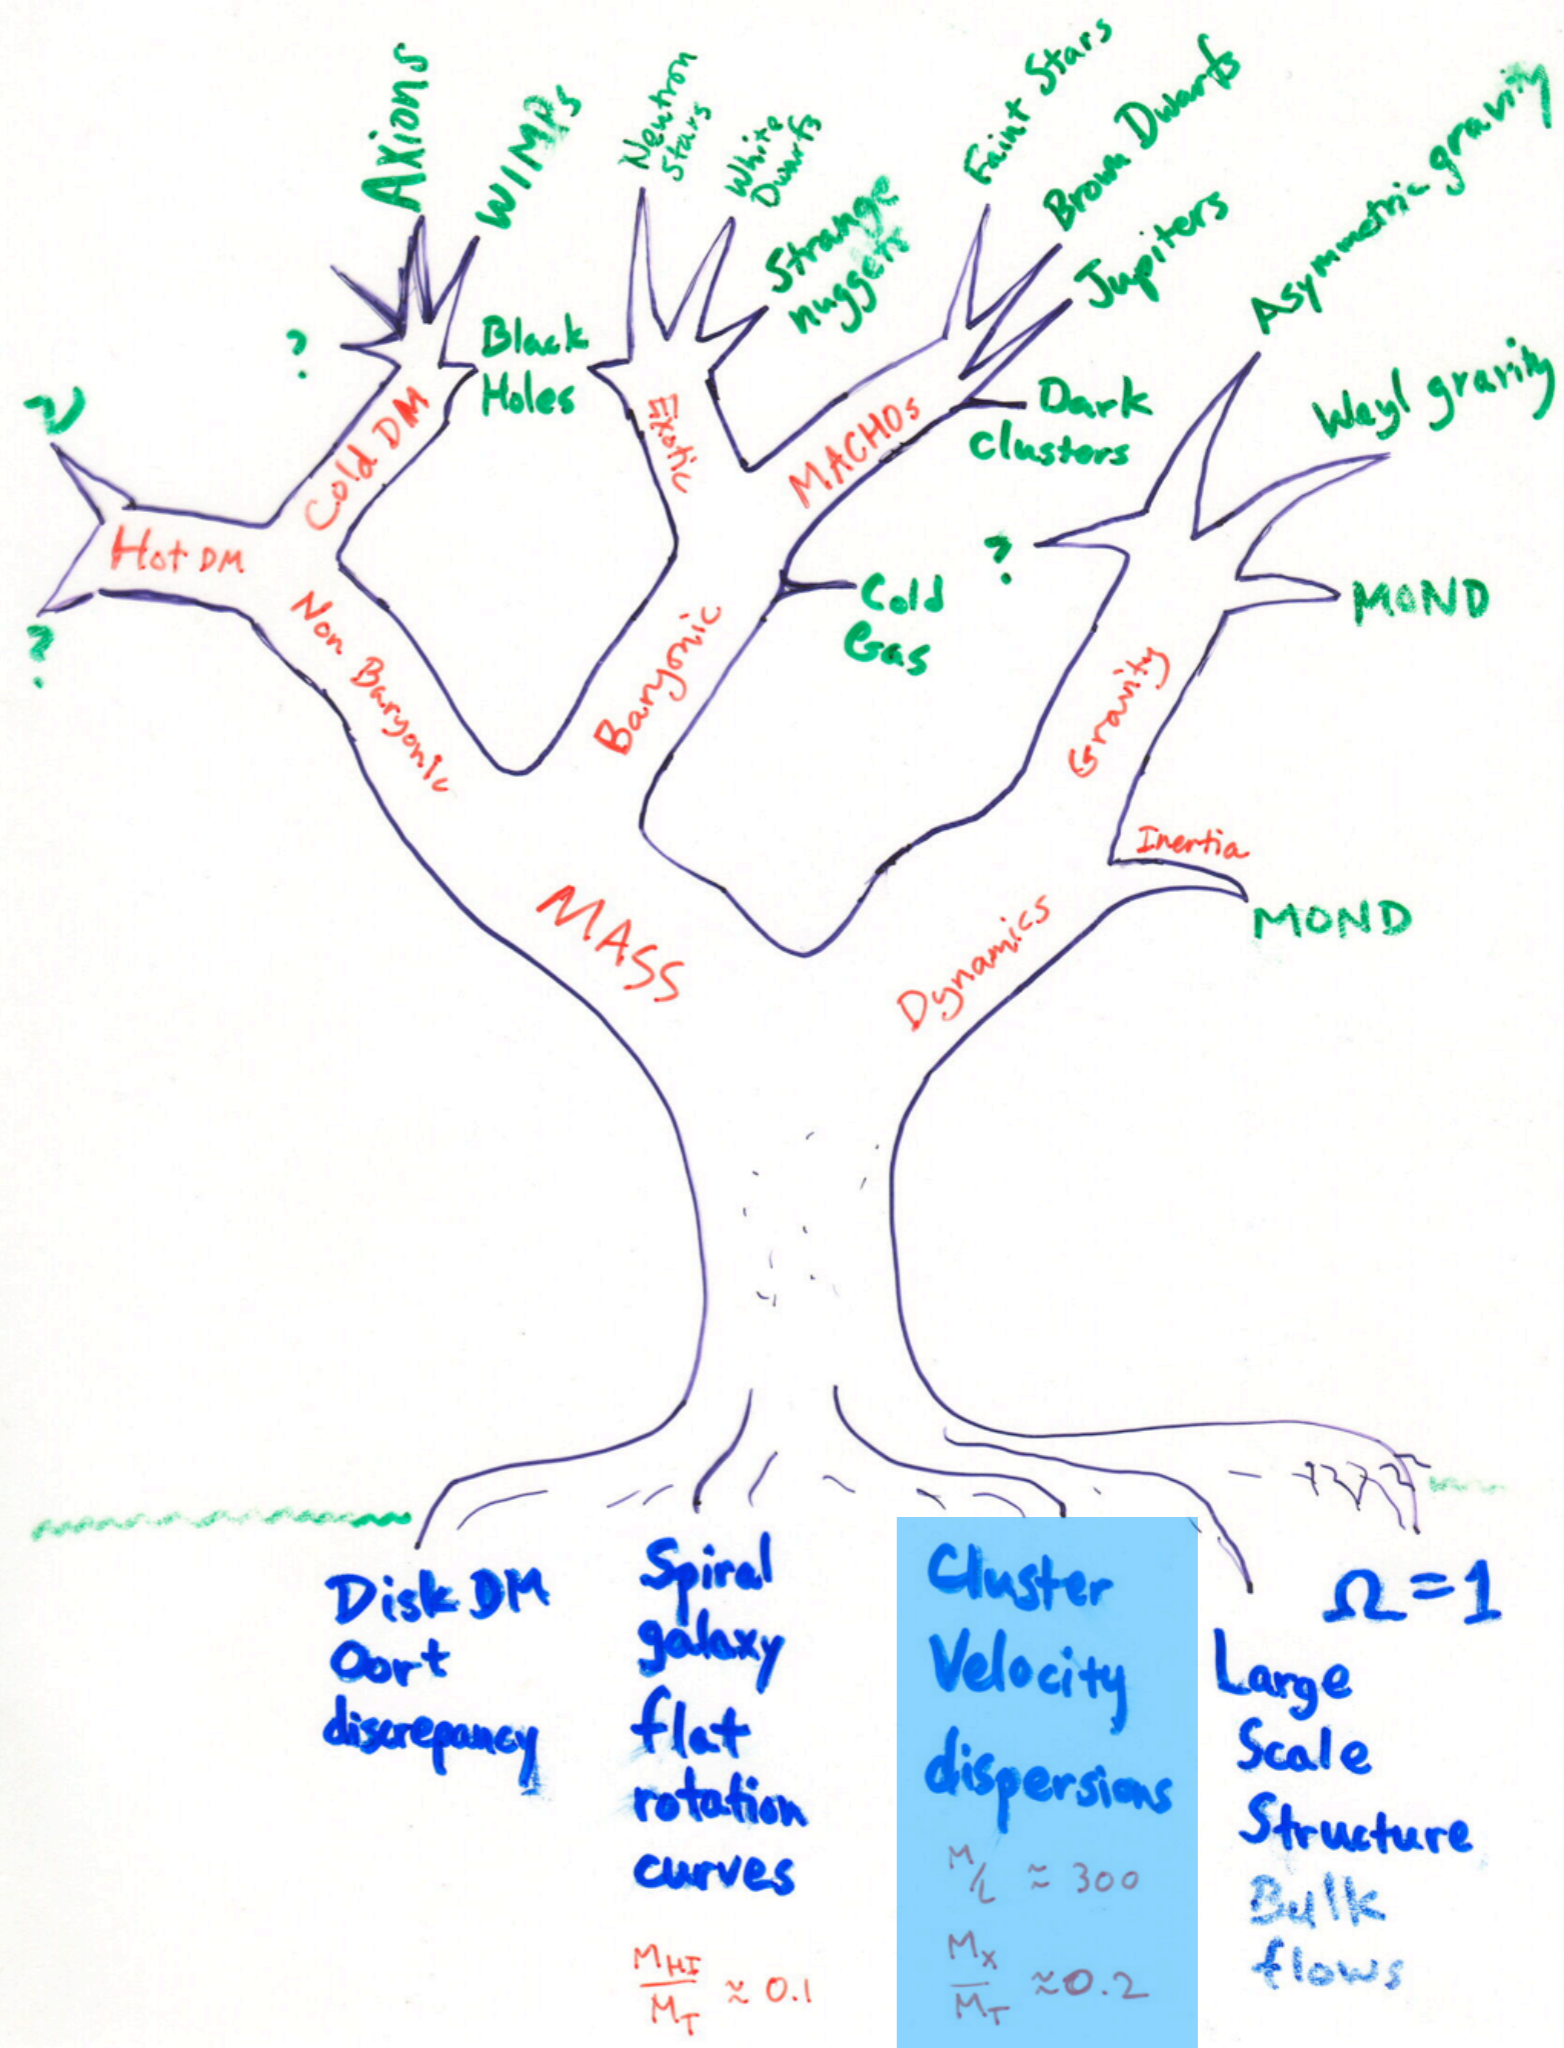 Axions
WIMPs
Neutron
Stars
White
Dwarfs
Strange
nuggets
Faint Stars
Brown Dwarfs
Jupiters
Asymmetric gravity
Weyl gravity
?
Black
Holes
ν
Cold DM
Exotic
MACHOs
Dark
clusters
Hot DM
?
Non Baryonic
Baryonic
Cold
Gas
?
MOND
Gravity
Inertia
MOND
MASS
Dynamics
Disk DM
Oort
discrepancy
Spiral
galaxy
flat
rotation
curves
M_HI/M_T ≈ 0.1
Cluster
Velocity
dispersions
M/L ≈ 300
M_X/M_T ≈ 0.2
Ω = 1
Large
Scale
Structure
Bulk
flows